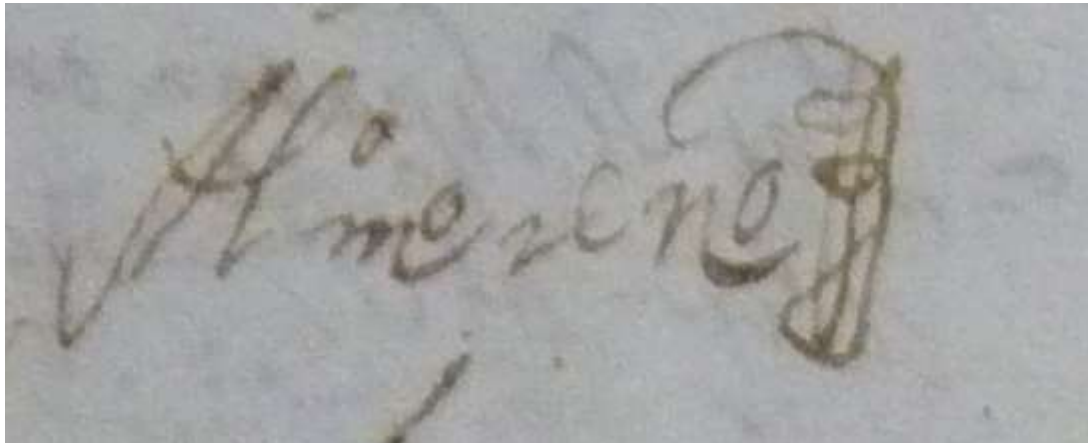 Al° moreno